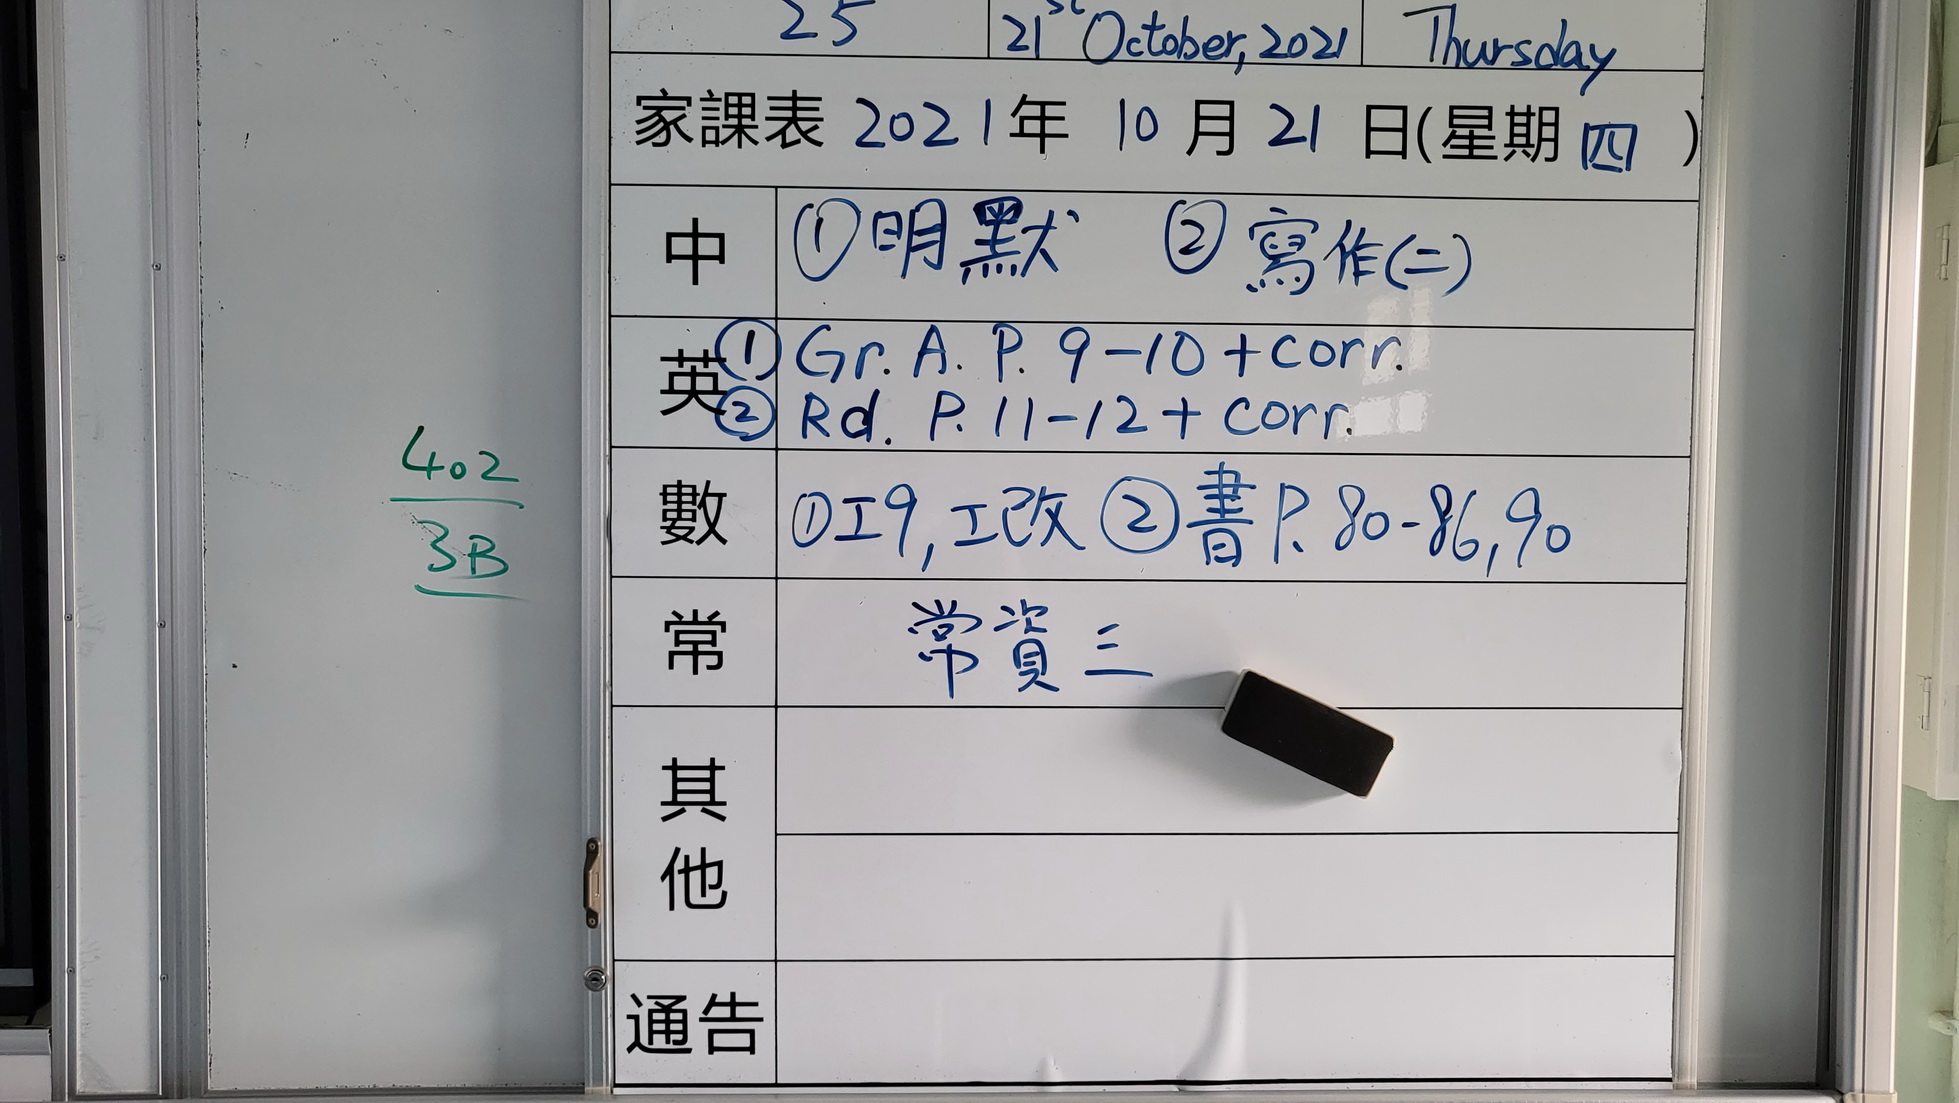 25 21st October, 2021 Thursday
家課表 2021年 10月21日(星期四)
中 ①明默 ②寫作(二)
英 ① Gr. A. P. 9-10 + corr.
② Rd. P. 11-12 + corr.
數 ①工9, 工改 ②書P. 80-86, 90
常 常資三
其他
通告
402
3B